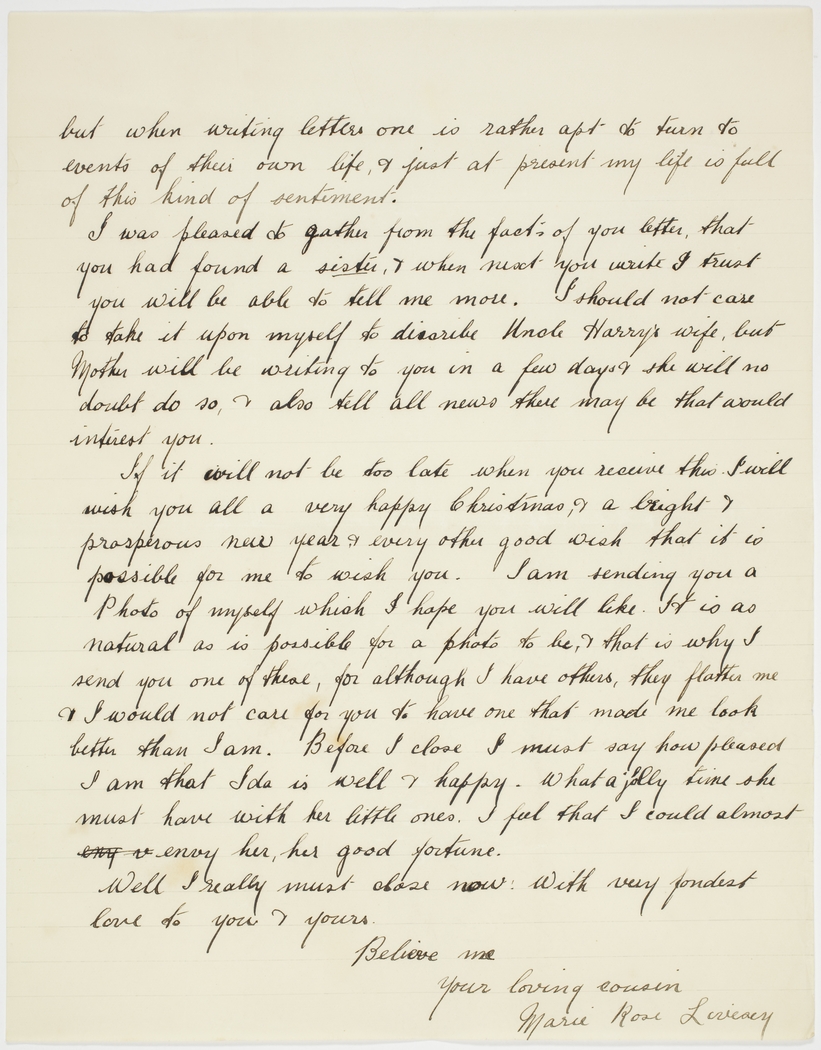 but when writing letters one is rather apt to turn to
events of their own life, & just at present my life is full
of this kind of sentiment.
I was pleased to gather from the facts of you letter, that
you had found a sister, & when next you write I trust
you will be able to tell me more. I should not care
to take it upon myself to discribe Uncle Harry's wife, but
Mother will be writing to you in a few days & she will no
doubt do so, & also tell all news there may be that would
interest you.
If it will not be too late when you receive this I will
wish you all a very happy Christmas, & a bright &
prosperous new year & every other good wish that it is
possible for me to wish you. I am sending you a
Photo of myself which I hope you will like. It is as
natural as is possible for a photo to be, & that is why I
send you one of these, for although I have others, they flatter me
& I would not care for you to have one that made me look
better than I am. Before I close I must say how pleased
I am that Ida is well & happy. What a jolly time she
must have with her little ones. I feel that I could almost
envy her, her good fortune.
Well I really must close now. With very fondest
love to you & yours.
Believe me
Your loving cousin
Marie Rose Livesey